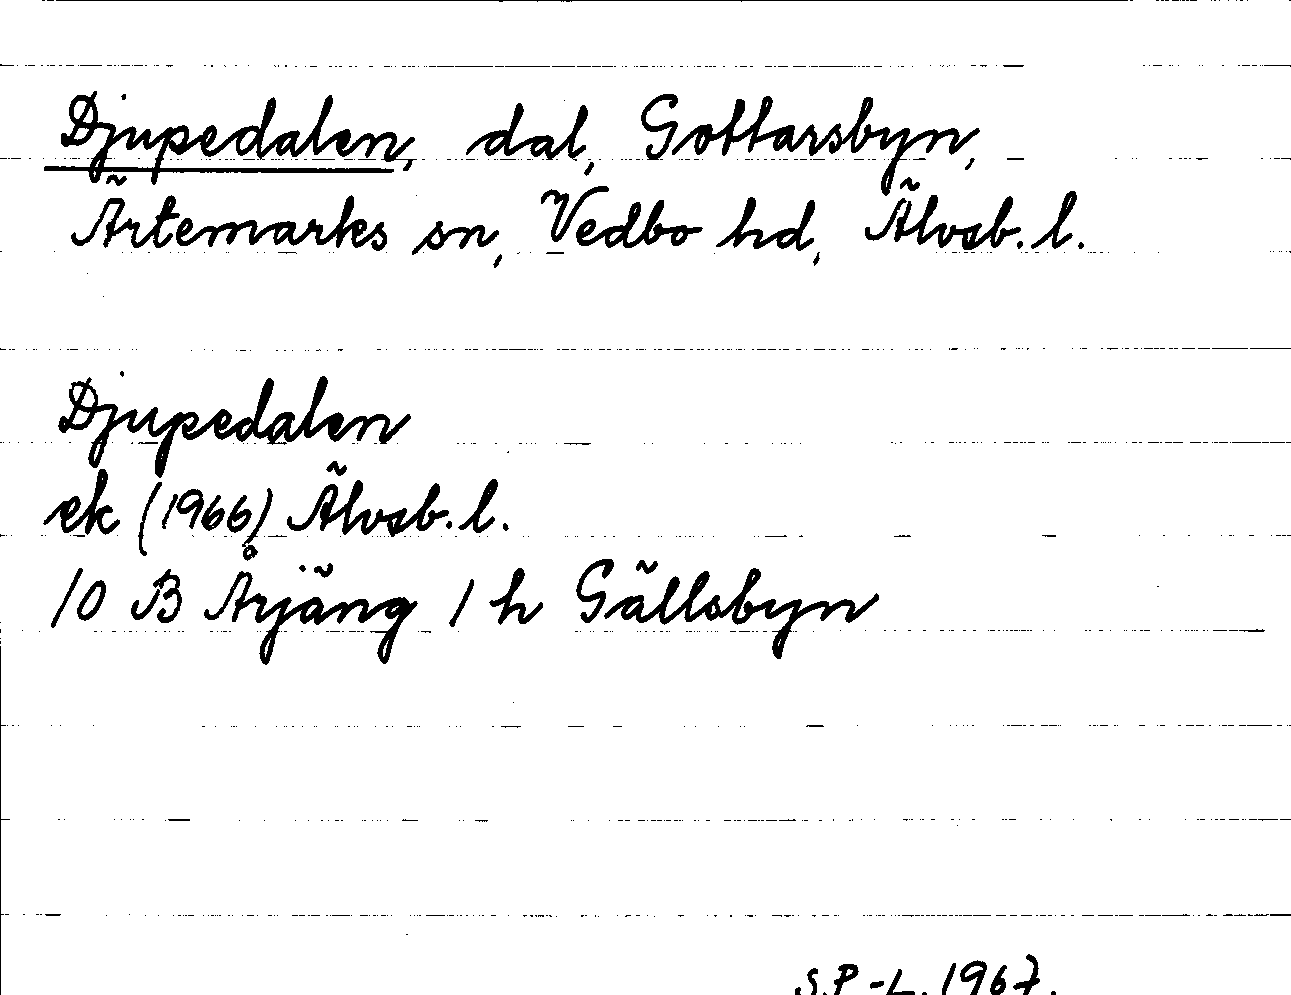 Djupedalen, dal, Gottarsbyn,
Ärtemarks sn, Vedbo hd, Älvsb. l.
Djupedalen
ek (1966) Älvsb. l.
10 B Årjäng 1 h Gällsbyn
S.P-L. 1967.